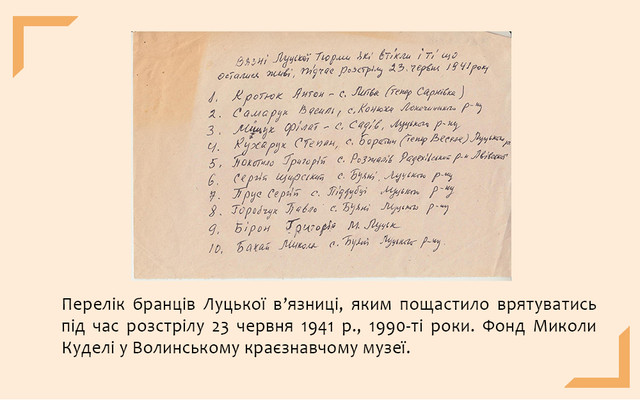 Вязні Луцької Тюрми які втікли і ті що
остались живі, підчас розстрілу 23. червня 1941 року
1. Кротюк Антон – с. Литва (тепер Сарнівка)
2. Самарук Василь, с. Конюхи Локачинського р-ну
3. Міщук Філат – с. Садів, Луцького р-ну
4. Кухарук Степан, с. Боратин (тепер Весняне) Луцького р-н
5. Покотило Григорій с. Розжалів Радехівський р-н Львівської
6. Сергій Щирський с. Буяні, Луцького р-ну
7. Прус Сергій с. Піддубці Луцького р-ну
8. Городчук Павло с. Буяні Луцького р-ну
9. Бірон Григорій м. Луцьк
10. Бахай Микола с. Буяни Луцького р-ну
Перелік бранців Луцької в’язниці, яким пощастило врятуватись
під час розстрілу 23 червня 1941 р., 1990-ті роки. Фонд Миколи
Куделі у Волинському краєзнавчому музеї.